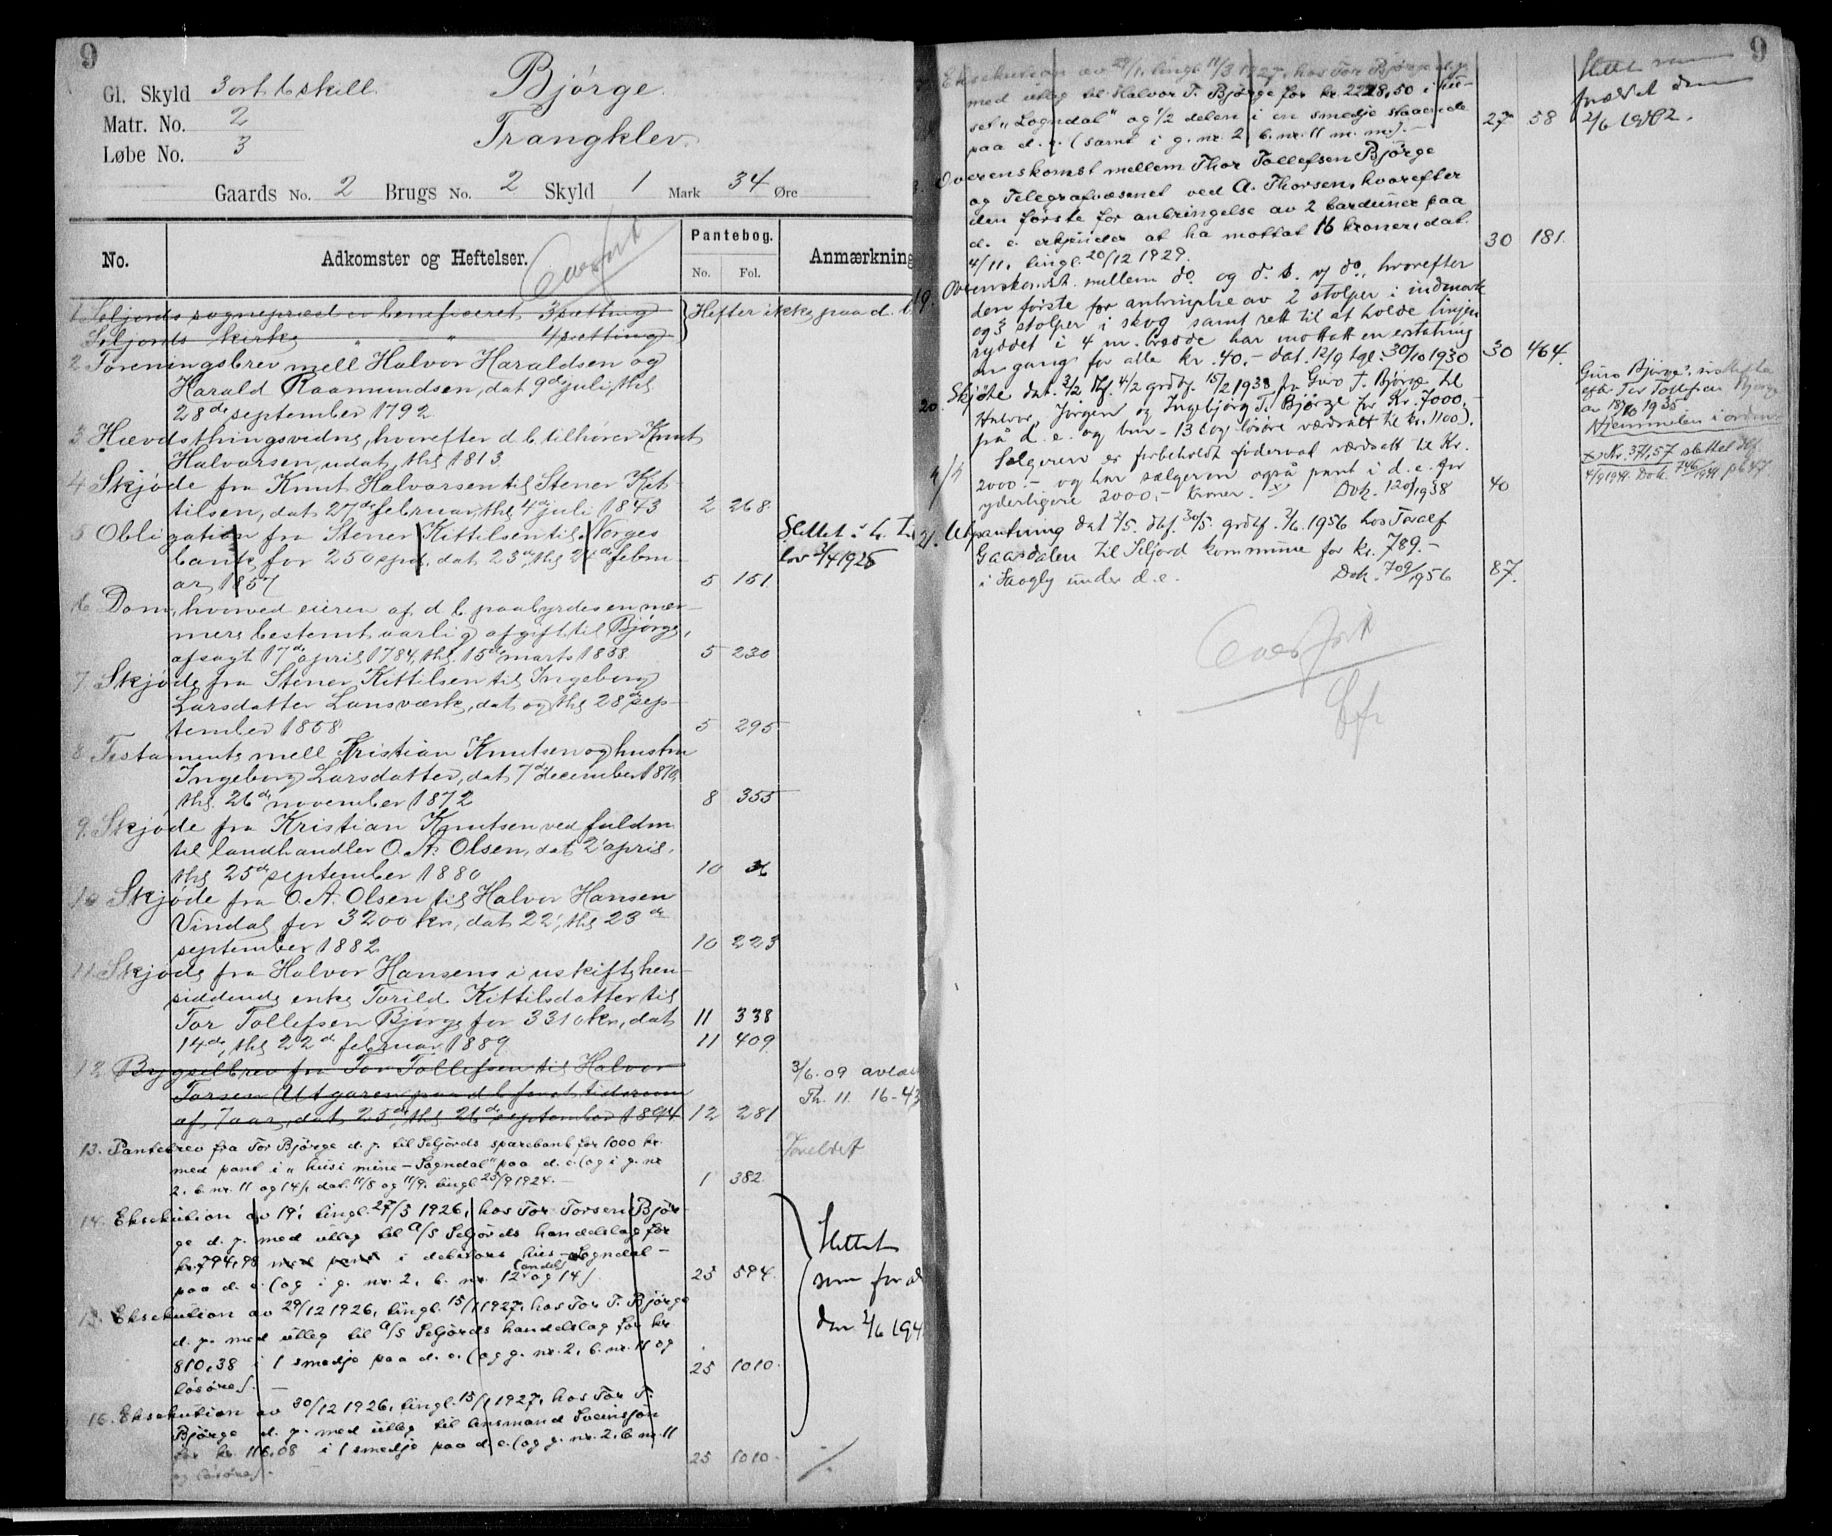 9
Gl. Skyld 3 ort 6 skill.
Matr. No. 2
Løbe No. 3
Bjørge.
Trangklev.
Gaards No. 2 Brugs No. 2 Skyld 1 Mark 34 Øre
No.
Adkomster og Heftelser.
Overført
Pantebog.
No. Fol.
Anmærkning
1. Seljords sognepræst er beneficeret 3 sætting
Seljords kirke " " 4 sætting
Hefter ikke paa d. b.
2 Foreningsbrev mell Halvor Haraldsen og
Harald Raamundsen, dat 9de juli, thl
28de september 1792
3 Hævdsthingsvidne, hvorefter d b tilhører Knut
Halvorsen, udat, thl 1813.
4 Skjøde fra Knut Halvorsen til Stener Kit-
tilsen, dat 27de februar, thl 4de juli 1843 2 268
5 Obligation fra Stener Kittilsen til Norges
bank for 250 spd, dat 23de, thl 24de febru-
ar 1857 5 151
Slettet i h. t.
lov 3/4 1925
6 Dom, hvorved eieren af d b paabyrdes en nær-
mere bestemt aarlig afgift til Bjørge,
afsagt 17de april 1784, thl 15de marts 1858 5 230
7 Skjøde fra Stener Kittilsen til Ingeborg
Larsdatter Lonsværk, dat og thl 28de sep-
tember 1858 5 295
8 Testamente mell Kristian Knutsen og hustru
Ingeborg Larsdatter, dat 7de december 1870,
thl 26de november 1872 8 355
9. Skjøde fra Kristian Knutsen ved fuldm
til landhandler O. A. Olsen, dat 2 april,
thl 25de september 1880 10 36
10 Skjøde fra O. A. Olsen til Halvor Hansen
Vindal for 3200 kr, dat 22, thl 23de
september 1882 10 223
11. Skjøde fra Halvor Hansens i uskifte hen-
siddende enke Torild Kittilsdatter til
Tor Tollefsen Bjørge for 3310 kr, dat 11 338
14de, thl 22de februar 1889 11 409
12 Bygselbrev fra Tor Tollefsen til Halvor
Torsen Utgaren paa d b for et tidsrum
af 7 aar, dat 25de, thl 26de september 1894 12 281
3/6.09 avlæst
Th. 11 16-43
13. Pantebrev fra Tor Bjørge d. y. til Seljords sparebank for 1000 kr.
med pant i "husi mine - Sogndal" paa d. e. (og i g. nr
2, b. nr. 11 og 14), dat. 11/8 og 11/9, tingl. 25/9 1924. - 1 382
14. Eksekution av 19, tingl. 27/3 1926, hos Tor Torsen Bjør-
ge d. y. med utlæg til A/S Seljords handelslag for
kr. 794,98 med pant i debitors hus - Sogndal -
paa d. e. (og i g. nr. 2, b. nr. 12 og 14). 25 594.
15. Eksekution av 29/12 1926, tingl. 15/1 1927, hos Tor T. Bjørge
d. y. med utlæg til A/S Seljords handelslag for kr.
810,38 i 1 smedje paa d. e. (og g. nr. 2, b. nr. 11 og
løsøre). 25 1010.
16. Eksekution av 30/12 1926, tingl. 15/1 1927, hos Tor T.
Bjørge d. y. med utlæg til lensmand Sveinsjon
for kr. 116,08 i 1 smedje paa d. e. (og g. nr. 2, b. nr. 11
og løsøre). 25 1010.
Slettet
som for
den 2/6 194
9
Eksekution av 28/1, tingl. 11/3 1927, hos Tor Bjørge d. y.
med utlæg til Halvor T. Bjørge for kr. 2228,50 i hu-
set "Sogndal" og 1/2 delen i en smedje staaende
paa d. e. (samt i g. nr. 2 b. nr. 11 m. m.). - 27 58
Slettet som
2/6 1942.
Overenskomst mellem Thor Tollefsen Bjørge
og Telegrafvæsenet ved A. Thorsen, hvorefter
den første for anbringelse av 2 barduner paa
d. e. erkjender at ha mottat 16 kroner, dat.
4/11, tingl. 20/12 1929. 30 181.
19. Overenskomst mellem do og d. t. v. do, hvorefter
den første for anbringelse av 2 stolper i indmark
og 3 stolper i skog samt rett til at holde linjen
ryddet i 4 m. bredde har mottatt en erstatning
en gang for alle kr. 40.- dat. 12/9 tgl. 30/10 1930 30 464.
20. Skjøte dat. 3/2 dbf. 4/2 grdbf. 15/2 1938 fra Guro T. Bjørge til
Halvor, Jørgen og Ingebjørg T. Bjørge for Kr. 7000.-
på d. e. og bnr. 13 (og løsøre værdsatt til kr. 1100).
Selgeren er forbeholdt føderaad værdsatt til Kr.
2000.- og har selgeren også pant i d. e. for
yderligere 2000.- kroner. x) Dok. 120/1938 40
Guro Bjørge i uskifte
efter Tor Tollefsen Bjørge
av 18/10 1935
Hjemmelen i orden
x) Kr. 371,57 slettet dbf.
21. Utpantning dat 2/5. dbf. 30/5. grdbf. 2/6. 1956 hos Toralf
Gaardalen til Seljord kommune for kr. 789.-
i Skogly under d. e. Dok. 709/1956 87.
Overført